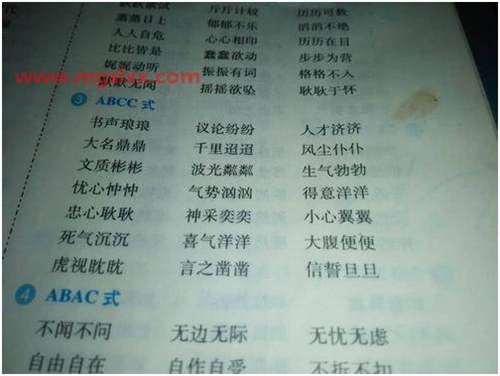 斤斤计较 历历可数
蒸蒸日上 郁郁不乐 滔滔不绝
人人自危 心心相印 历历在目
比比皆是 蠢蠢欲动 步步为营
娓娓动听 振振有词 格格不入
默默无闻 摇摇欲坠 耿耿于怀
3 ABCC 式
书声琅琅 议论纷纷 人才济济
大名鼎鼎 千里迢迢 风尘仆仆
文质彬彬 波光粼粼 生气勃勃
忧心忡忡 气势汹汹 得意洋洋
忠心耿耿 神采奕奕 小心翼翼
死气沉沉 喜气洋洋 大腹便便
虎视眈眈 言之凿凿 信誓旦旦
4 ABAC 式
不闻不问 无边无际 无忧无虑
自由自在 自作自受 不折不扣